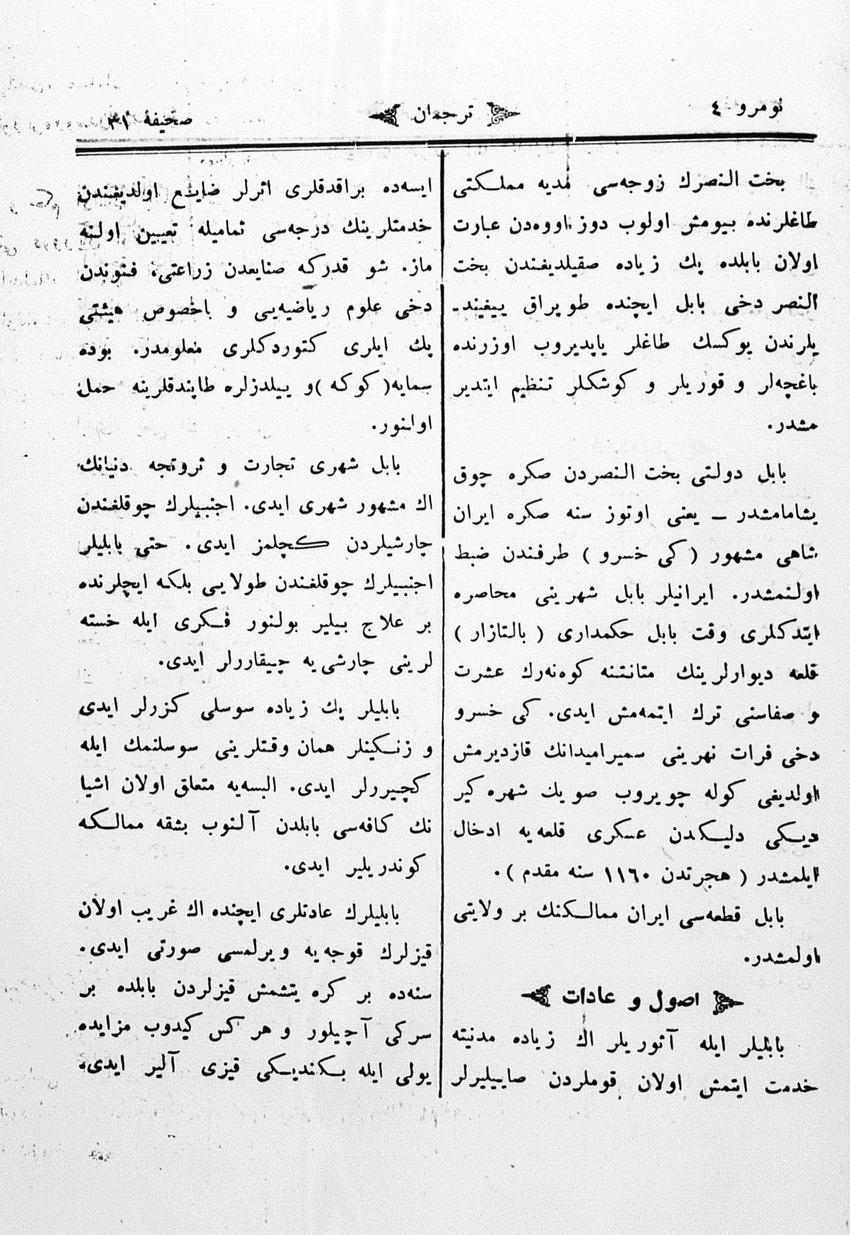 نومرو ٤
ترجمان
صحيفة ٣١
بخت النصرك زوجه‌سی مدیه مملکتی
طاغلرنده بیومش اولوب دوز اووه‌دن عبارت
اولان بابلده پك زیاده صقیلدیغندن بخت
النصر دخی بابل ایچنده طوپراق ییغیند-
یلرندن یوکسك طاغلر یاپدیروب اوزرنده
باغچه‌لر و قوریلر و کوشکلر تنظیم ایتدیر
مشدر.
بابل دولتی بخت النصردن صکره چوق
یشامامشدر — یعنی اوتوز سنه صکره ایران
شاهی مشهور (کی خسرو) طرفندن ضبط
اولنمشدر. ایرانیلر بابل شهرینی محاصره
ایتدکلری وقت بابل حکمداری (بالتازار)
قلعه دیوارلرینك متانتنه کوه‌نه‌رك عشرت
و صفاسنی ترك ایتمه‌مش ایدی. کی خسرو
دخی فرات نهرینی سمیرامیدانك قازدیرمش
اولدیغی کوله چویروب صویك شهره کیر
دیکی دلیکدن عسکری قلعه‌یه ادخال
ایلمشدر (هجرتدن ١١٦٠ سنه مقدم).
بابل قطعه‌سی ایران ممالکنك بر ولایتی
اولمشدر.
اصول و عادات
بابلیلر ایله آثوریلر اك زیاده مدنیته
خدمت ایتمش اولان قوملردن صاییلیرلر
ایسه‌ده براقدقلری اثرلر ضایع اولدیغندن
خدمتلرینك درجه‌سی تمامیله تعیین اولنه
ماز. شو قدرکه صنایعدن زراعتی، فنوندن
دخی علوم ریاضیه‌یی و باخصوص هیئتی
پك ایلری کتوردکلری معلومدر. بوده
سمایه (کوکه) و ییلدزلره طاپندقلرینه حمل
اولنور.
بابل شهری تجارت و ثروتجه دنیانك
اك مشهور شهری ایدی. اجنبیلرك چوقلغندن
چارشیلردن کچلمز ایدی. حتی بابلیلر
اجنبیلرك چوقلغندن طولایی بلکه ایچلرنده
بر علاج بیلیر بولنور فکری ایله خسته
لرینی چارشی‌یه چیقاررلر ایدی.
بابلیلر پك زیاده سوسلی کزرلر ایدی
و زنکینلر همان وقتلرینی سوسلنمك ایله
کچیررلر ایدی. البسه‌یه متعلق اولان اشیا
نك کافه‌سی بابلدن آلنوب بشقه ممالکه
کوندریلیر ایدی.
بابلیلرك عادتلری ایچنده اك غریب اولان
قیزلرك قوجه‌یه ویرلمسی صورتی ایدی.
سنه‌ده بر کره یتشمش قیزلردن بابلده بر
سرکی آچیلور و هر کس کیدوب مزایده
یولی ایله بکندیکی قیزی آلیر ایدی،